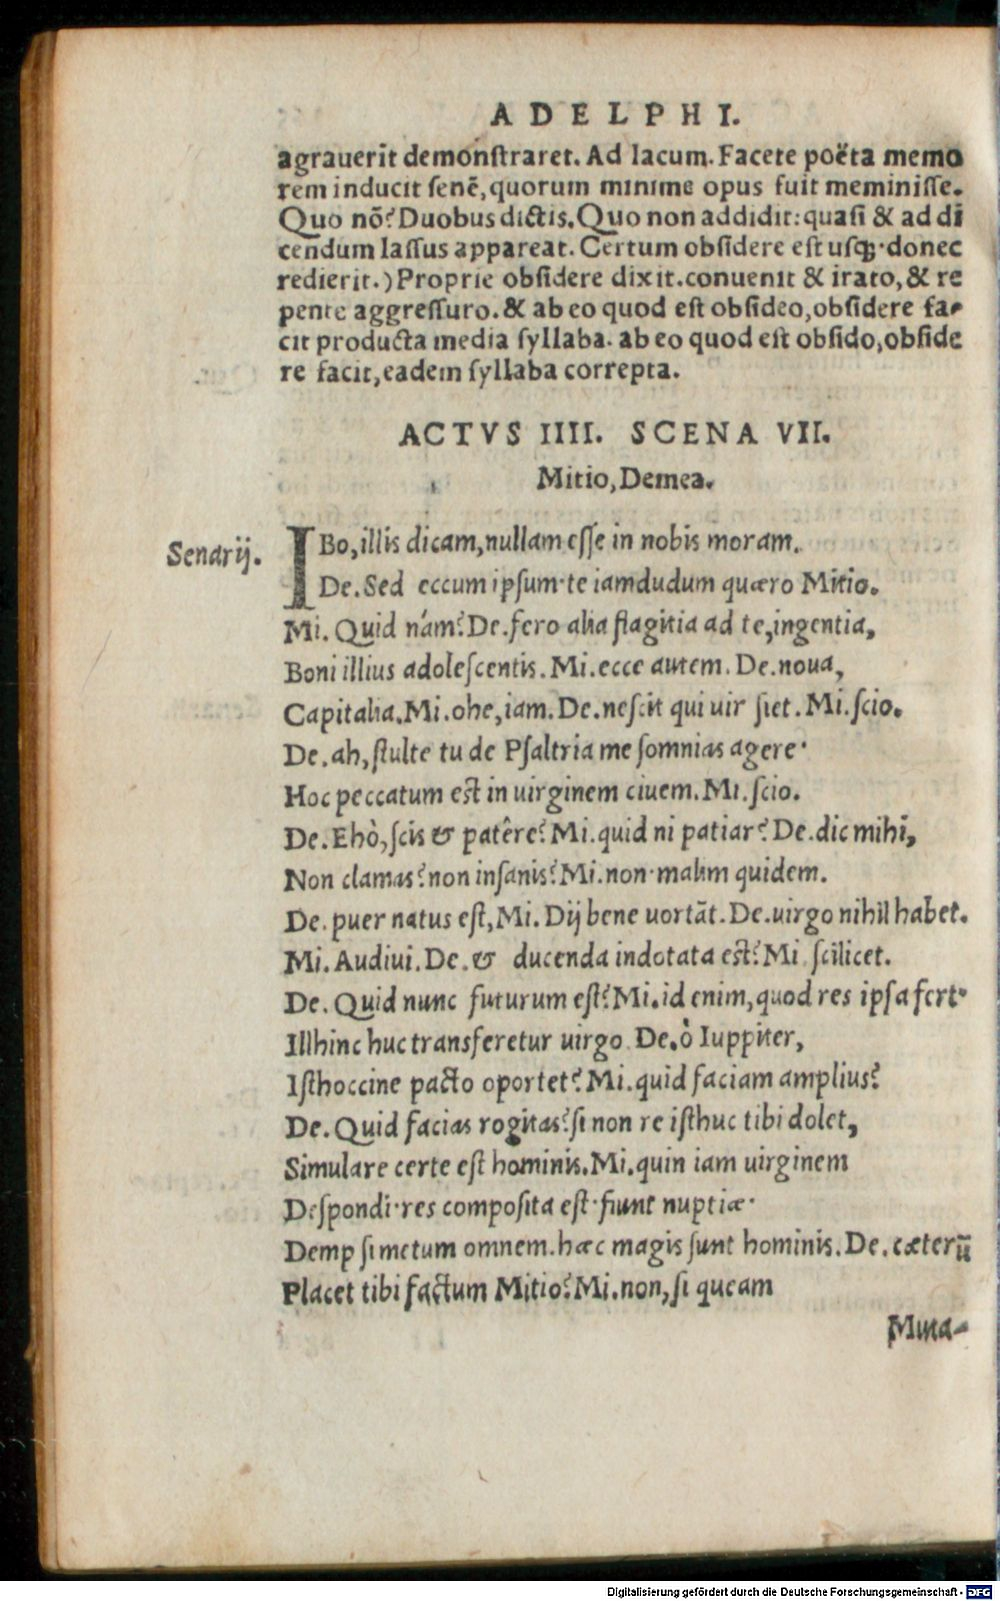 ADELPHI.
agrauerit demonstraret. Ad lacum. Facete poëta memo
rem inducit senē, quorum minime opus fuit meminisse.
Quo nō? Duobus dictis. Quo non addidit: quasi & ad di
cendum lassus appareat. Certum obsidere est usq;·donec
redierit.) Proprie obsidere dixit. conuenit & irato, & re
pente aggressuro. & ab eo quod est obsideo, obsidere fa-
cit producta media syllaba. ab eo quod est obsido, obside
re facit, eadem syllaba correpta.
ACTVS IIII. SCENA VII.
Mitio, Demea.
Senarij.
IBo, illis dicam, nullam esse in nobis moram.
De. Sed eccum ipsum·te iamdudum quæro Mitio.
Mi. Quid nám? De. fero alia flagitia ad te, ingentia,
Boni illius adolescentis. Mi. ecce autem. De. noua,
Capitalia. Mi. ohe, iam. De. nescit qui uir siet. Mi. scio.
De. ah, stulte tu de Psaltria me somnias agere·
Hoc peccatum est in uirginem ciuem. Mi. scio.
De. Ehò, scis & patêre? Mi. quid ni patiar? De. dic mihi,
Non clamas? non insanis? Mi. non·malim quidem.
De. puer natus est, Mi. Dij bene uortāt. De. uirgo nihil habet.
Mi. Audiui. De. & ducenda indotata est? Mi scilicet.
De. Quid nunc futurum est? Mi. id enim, quod res ipsa fert·
Illhinc huc transferetur uirgo De. ò Iuppiter,
Isthoccine pacto oportet? Mi. quid faciam amplius?
De. Quid facias rogitas? si non re isthuc tibi dolet,
Simulare certe est hominis. Mi. quin iam uirginem
Despondi·res composita est·fiunt nuptiæ·
Demp si metum omnem. hæc magis sunt hominis. De. cæterū
Placet tibi factum Mitio? Mi. non, si queam
Muta-
Digitalisierung gefördert durch die Deutsche Forschungsgemeinschaft - DFG